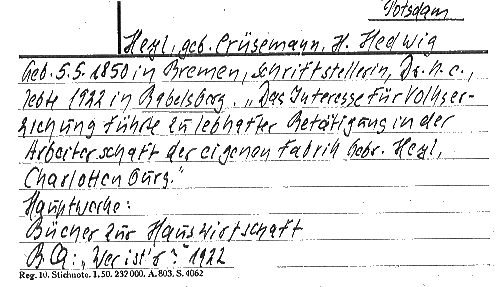 Potsdam
Heyl, geb. Crüsemann, H. Hedwig
Geb. 5.5.1850 in Bremen, Schriftstellerin, Dr. h. c.,
lebte 1922 in Babelsberg. „Das Interesse für Volkser-
ziehung führte zu lebhafter Betätigung in der
Arbeiterschaft der eigenen Fabrik Gebr. Heyl,
Charlottenburg."
Hauptwerke:
Bücher zur Hauswirtschaft
B. Qu: „Wer ist's?" 1922
Reg. 10. Stichnote. 1. 50. 232 000. A. 803. S. 4062